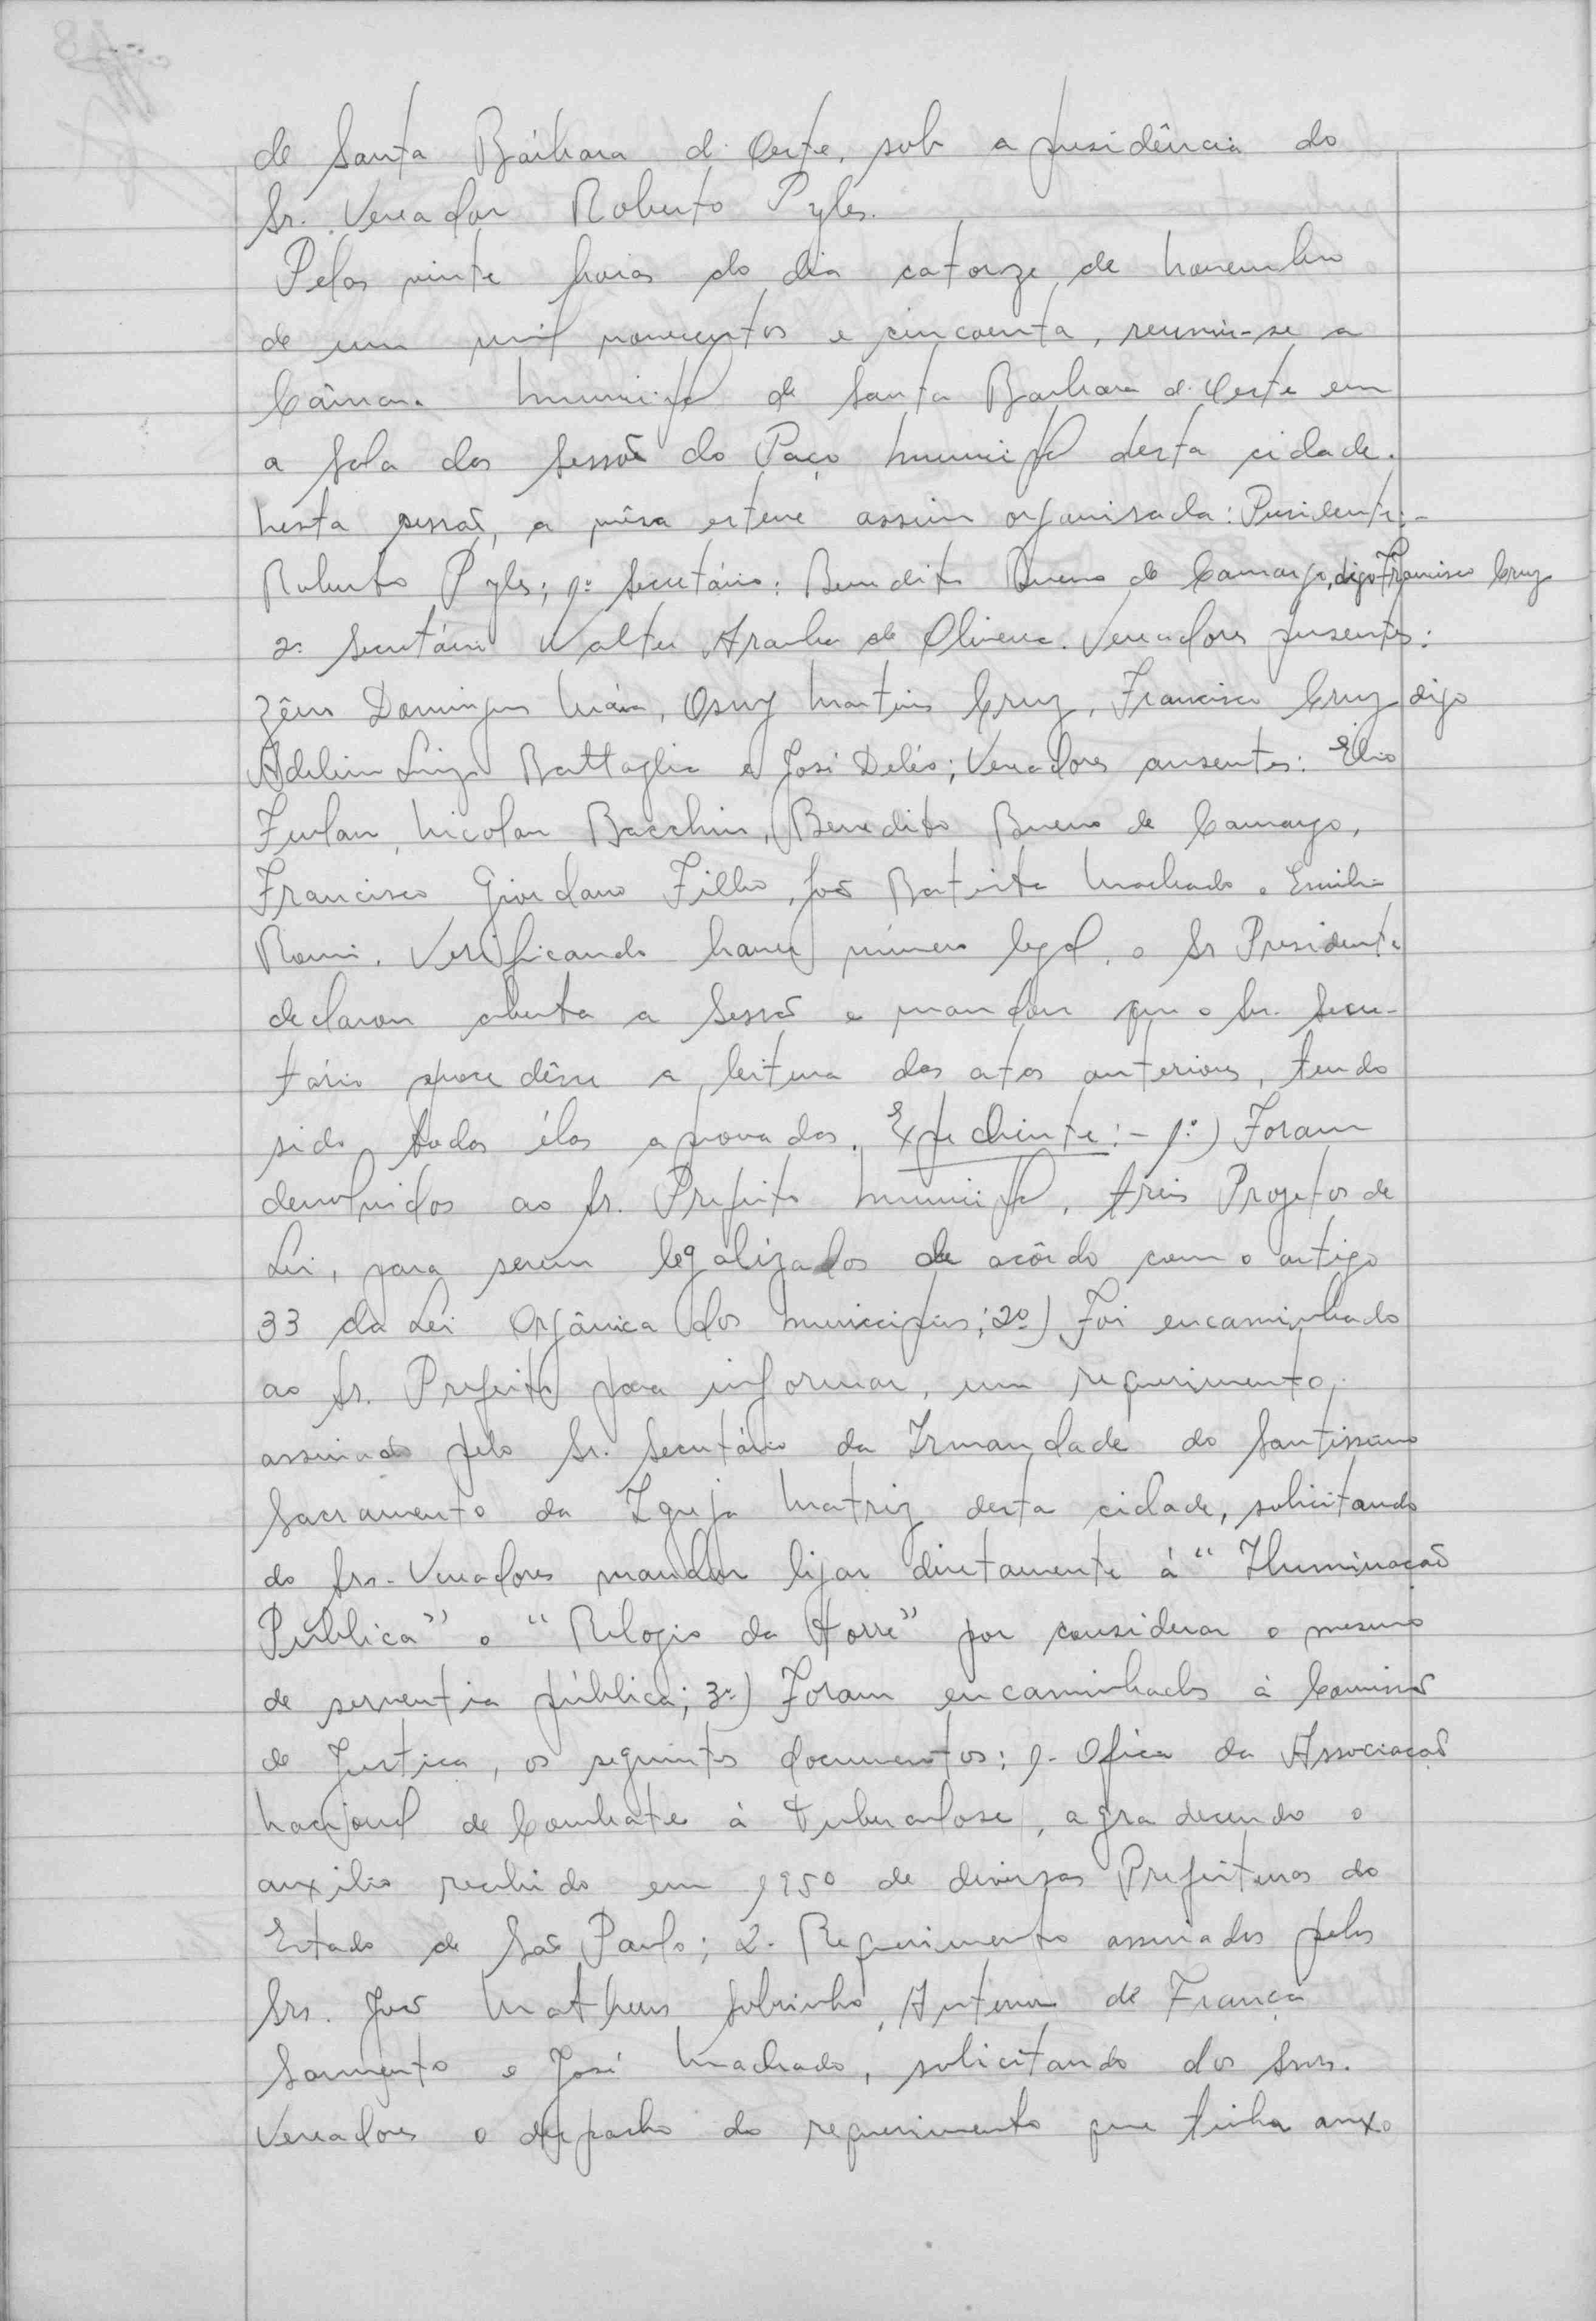 de Santa Bárbara d'Oeste, sob a presidência do
Sr. Vereador Roberto Pyles.
Pelas vinte horas do dia catorze de novembro
de um mil novecentos e cincoenta, reuniu-se a
Câmara Municipal de Santa Barbara d'Oeste em
a sala das sessões do Paço Municipal desta cidade.
Nesta sessão, a mêsa esteve assim organisada: Presidente:-
Roberto Pyles; 1º Secretário: Benedito Bueno de Camargo, digo Francisco Cruz
2º Secretário Walter Aranha de Oliveira. Vereadores presentes:
Zêno Domingues Maia, Osny Martins Cruz, Francisco Cruz digo
Adelino Luiz Battaglia e José Deléo; Vereadores ausentes: Elio
Furlan, Nicolau Bacchin, Benedito Bueno de Camargo,
Francisco Giordano Filho, João Batista Machado e Emilio
Romi. Verificando haver número legal, o Sr Presidente
declarou aberta a Sessão e mandou que o Sr. Secre-
tário procedêsse a leitura das atas anteriores, tendo
sido todas élas aprovadas. Expediente:- 1º) Foram
devolvidos ao Sr. Prefeito Municipal, três Projetos de
Lei, para serem legalizados de acôrdo com o artigo
33 da Lei Orgânica dos Municipios; 2º) Foi encaminhado
ao Sr. Prefeito para informar, um requerimento,
assinado pelo Sr. Secretário da Irmandade do Santissimo
Sacramento da Igreja Matriz desta cidade, solicitando
do Srs. Vereadores mandar ligar diretamente à "Iluminação
Pública" o "Relogio da Torre" por considerar o mesmo
de serventia pública; 3º) Foram encaminhados à Comissão
de Justiça, os seguintes documentos: 1- Oficio da Associação
Nacional de Combate à Tuberculose, agradecendo o
auxilio recebido em 1950 de diversas Prefeituras do
Estado de São Paulo; 2- Requerimento assinados pelos
Srs. João Matheus Sobrinho, Antenor de França
Sarmento e José Machado, solicitando dos Snrs.
Vereadores o despacho do requerimento que tinha anexo